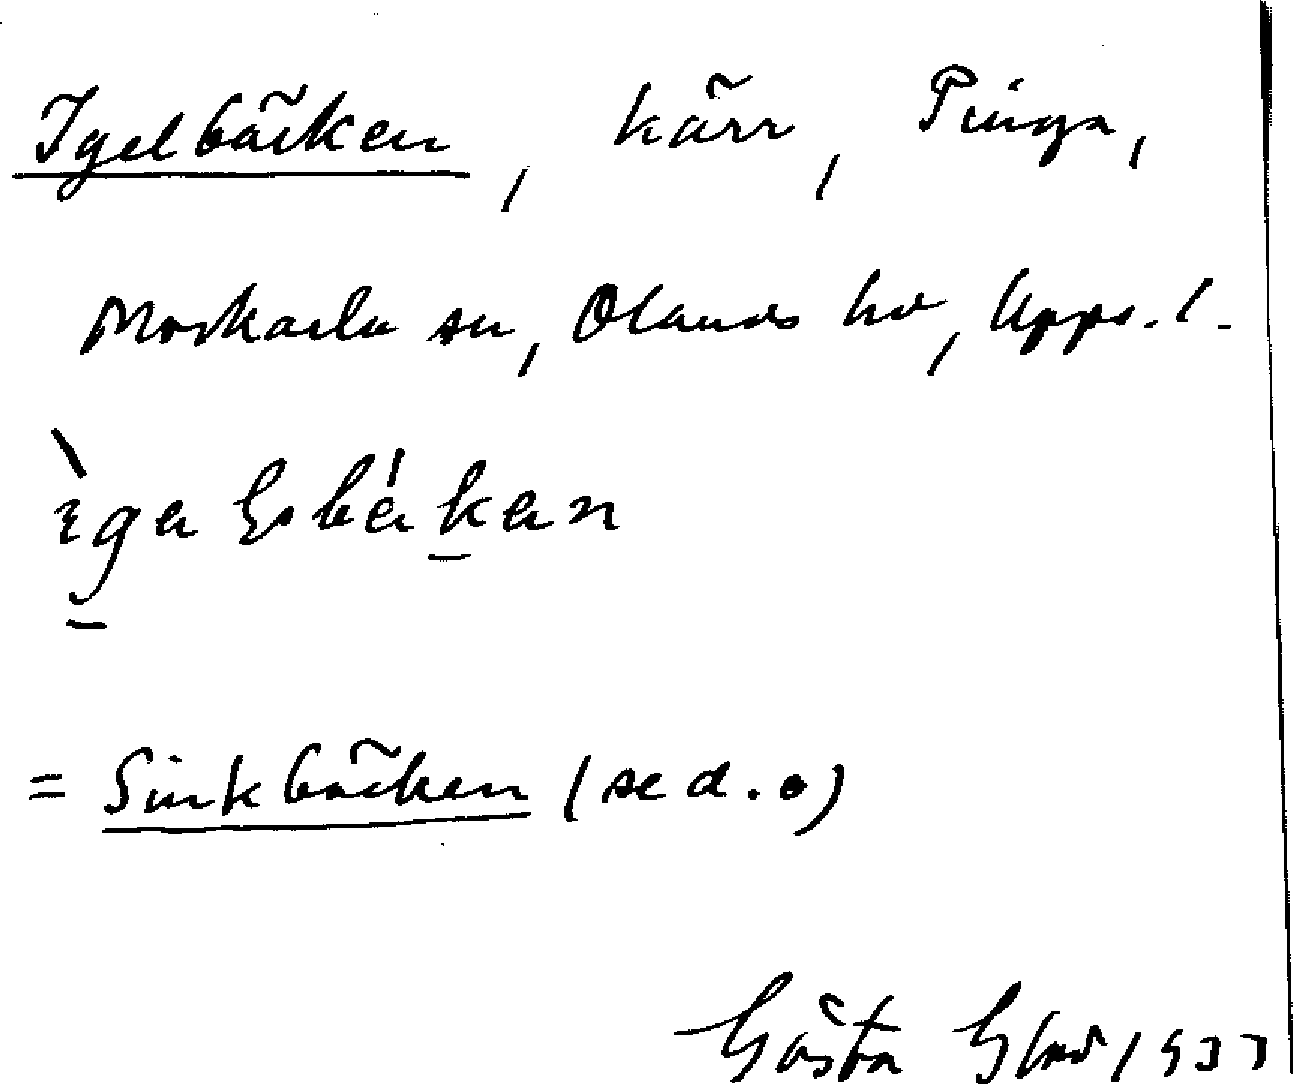 Igelbäcken, kärr, Pinga,
Morkarla sn, Olands hd, Upps. l.
= Sinkbäcken (se d. o)
Gösta 1933